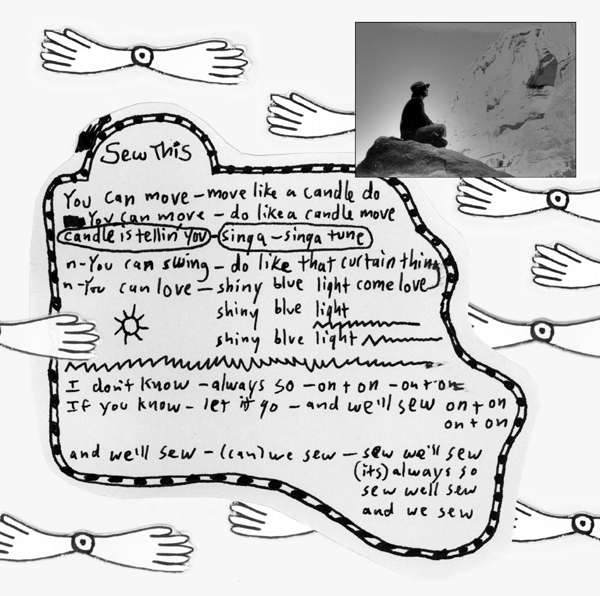 Sew This
You can move - move like a candle do
You can move - do like a candle move
candle is tellin' you - singa - singa tune
n-You can swing - do like that curtain thing
n-You can love - shiny blue light come love
shiny blue light
shiny blue light
I don't know - always so - on + on - on + on
If you know - let it go - and we'll sew on + on
on + on
and we'll sew - (can) we sew - sew we'll sew
(its) always so
sew we'll sew
and we sew